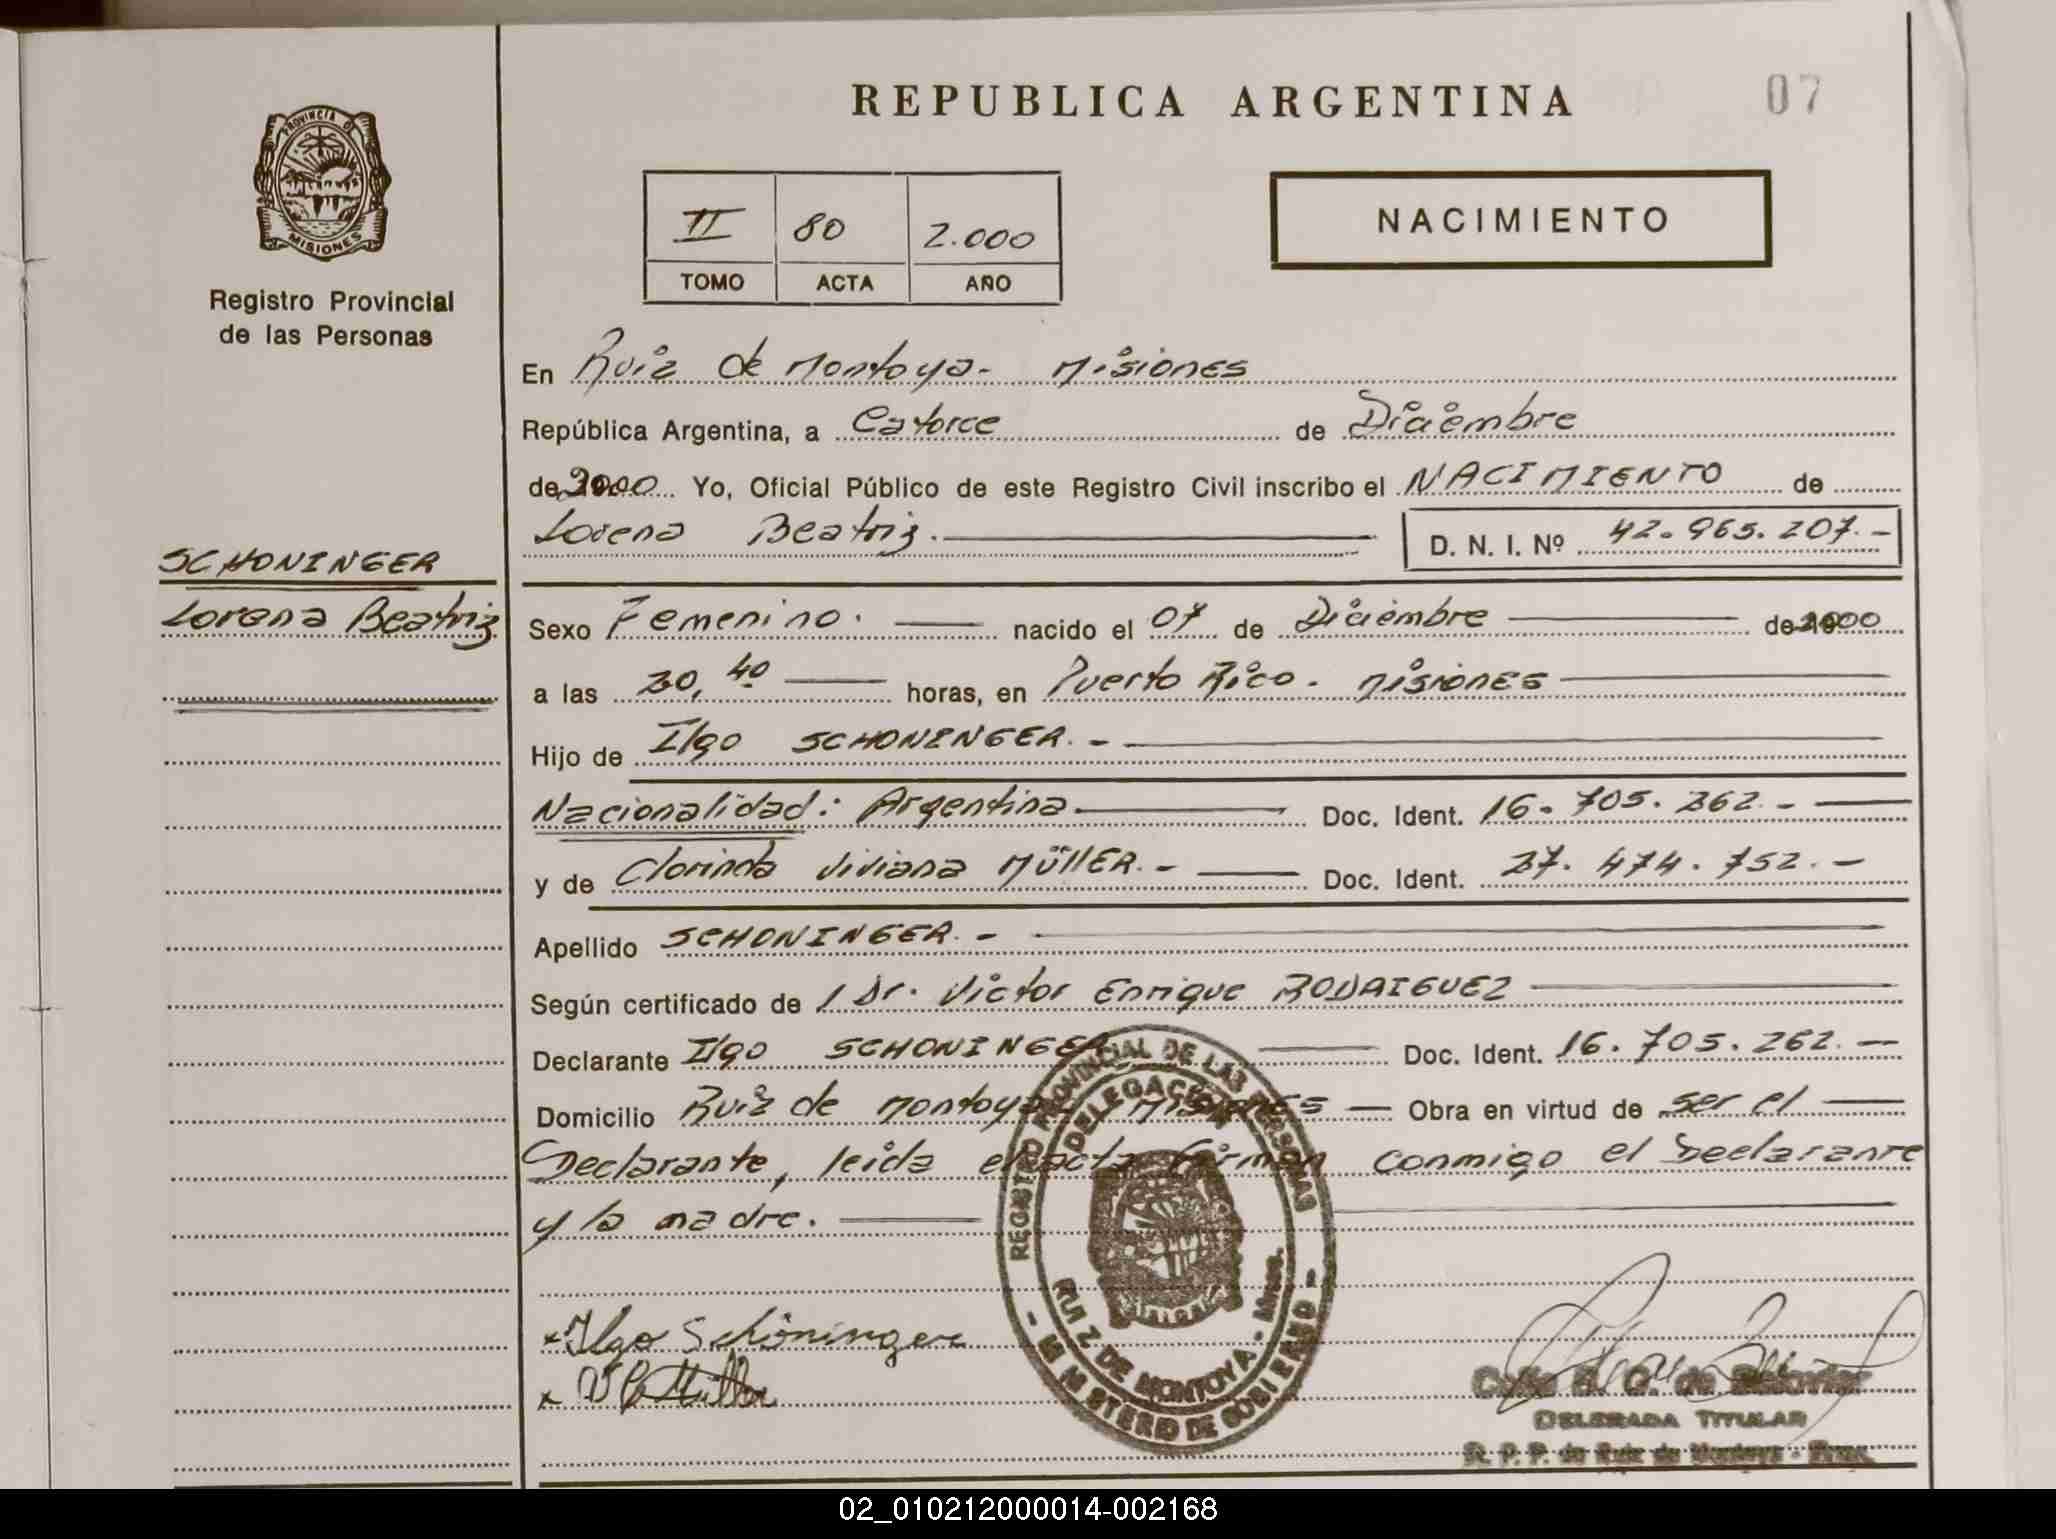 REPUBLICA ARGENTINA
07
PROVINCIA DE
MISIONES
Registro Provincial
de las Personas
II 80 2.000
TOMO ACTA AÑO
NACIMIENTO
En Ruiz de Montoya- Misiones
República Argentina, a Catorce de Diciembre
de 2000 Yo, Oficial Público de este Registro Civil inscribo el NACIMIENTO de
Lorena Beatriz.
D. N. I. Nº 42.965.207.-
SCHONINGER
Lorena Beatriz
Sexo Femenino. nacido el 07 de Diciembre de 2000
a las 20,40 horas, en Puerto Rico. Misiones
Hijo de Ilgo SCHONINGER.-
Nacionalidad: Argentina Doc. Ident. 16.705.262.-
y de Clorinda Viviana MÜllER.- Doc. Ident. 27.474.752.-
Apellido SCHONINGER.-
Según certificado de Dr. Victor Enrique RODRIGUEZ
Declarante Ilgo SCHONINGER Doc. Ident. 16.705.262.-
Domicilio Ruiz de Montoya Misiones Obra en virtud de ser el
Declarante, leida el acta firman conmigo el Declarante
y la madre.
REGISTRO PROVINCIAL DE LAS PERSONAS
DELEGACION
RUIZ DE MONTOYA - Mnes.
- MINISTERIO DE GOBIERNO -
x Ilgo Schöninger
x Müller
DELEGADA TITULAR
R. P. P. de Ruiz de Montoya
02_010212000014-002168